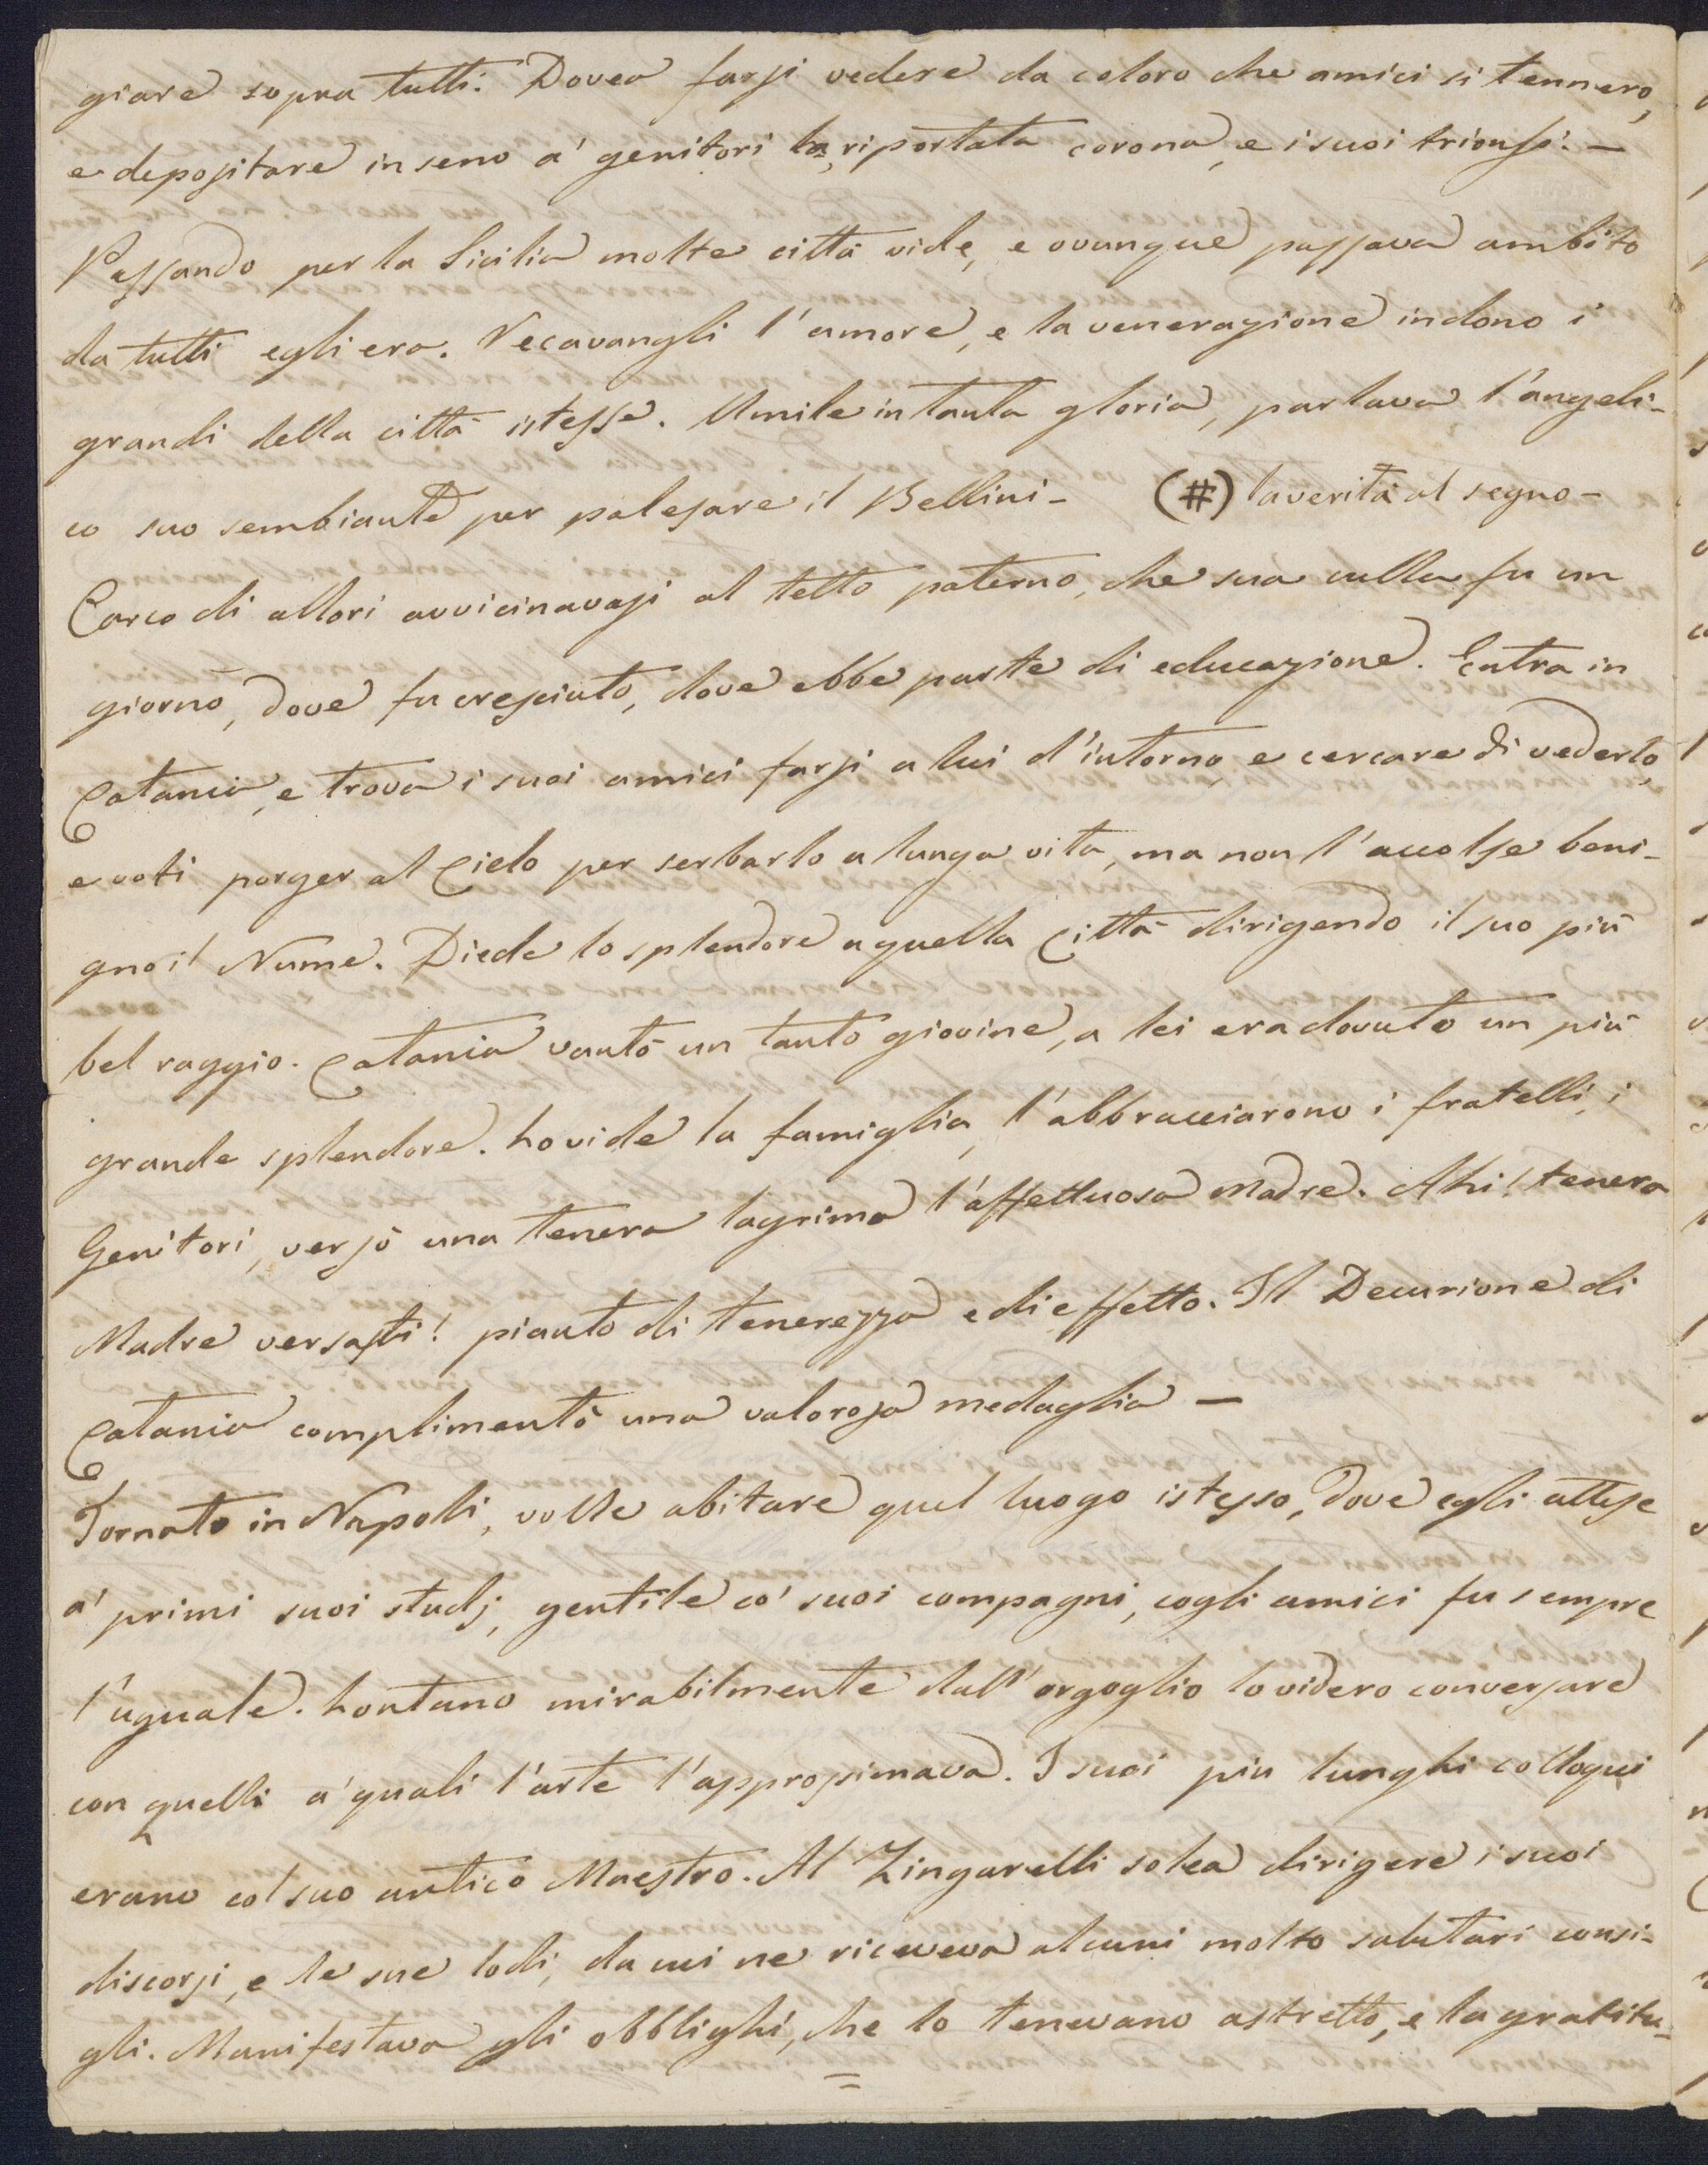 giare sopra tutti. Dovea farsi vedere da coloro che amici si tennero,
e depositare in seno a' genitori la riportata corona, e i suoi trionfi. —
Passando per la Sicilia molte città vide, e ovunque passava ambito
da tutti egli era. Recavangli l'amore, e la venerazione in dono i
grandi della città istesse. Umile in tanta gloria, parlava l'angeli-
co suo sembiante per palesare il Bellini - (#) la verità al segno -
Carco di allori avvicinavasi al tetto paterno, che sua culla fu un
giorno, dove fu cresciuto, dove ebbe parte di educazione. Entra in
Catania, e trova i suoi amici farsi a lui d'intorno, e cercare di vederlo,
e voti porger al Cielo per serbarlo a lunga vita, ma non l'accolse beni-
gno il Nume. Diede lo splendore a quella Città dirigendo il suo più
bel raggio. Catania vantò un tanto giovine, a lei era dovuto un più
grande splendore. Lo vide la famiglia, l'abbracciarono i fratelli, i
Genitori, versò una tenera lagrima l'affettuosa Madre. Ahi! tenera
Madre versasti! pianto di tenerezza e di effetto. Il Decurione di
Catania complimentò una valorosa medaglia —
Tornato in Napoli, volle abitare quel luogo istesso, dove egli attese
a' primi suoi studj, gentile co' suoi compagni, cogli amici fu sempre
l'uguale. Lontano mirabilmente dall'orgoglio lo videro conversare
con quelli a' quali l'arte l'approssimava. I suoi piu lunghi colloqui
erano col suo antico Maestro. Al Zingarelli solea dirigere i suoi
discorsi, e le sue lodi, da cui ne riceveva alcuni molto salutari consi-
gli. Manifestava gli obblighi, che lo tenevano astretto, e la gratitu-